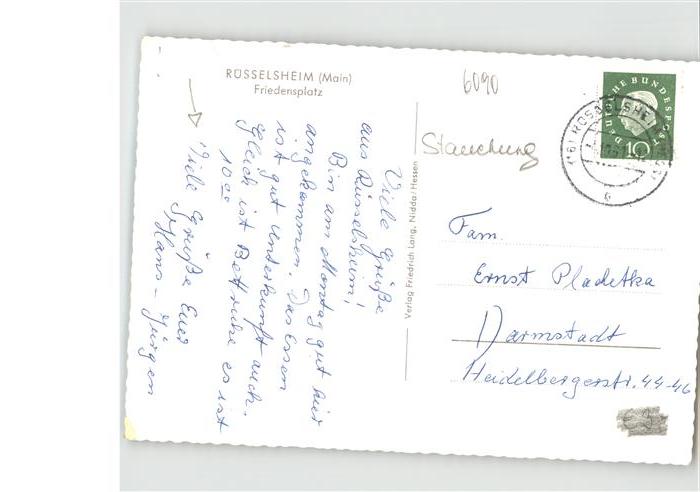 RÜSSELSHEIM (Main)
Friedensplatz
6090
DEUTSCHE BUNDESPOST
10
(16) RÜSSELSHEIM
Stauchung
Viele Grüße
aus Rüsselsheim!
Bin am Montag gut hier
angekommen. Das Essen
ist gut Unterkunft auch.
Gleich ist Bettruhe es ist
10 00
Viele Grüße Euer
Hans-Jürgen
Verlag Friedrich Lang, Nidda/Hessen
Fam.
Ernst Pladetka
Darmstadt
Heidelbergerstr. 44-46